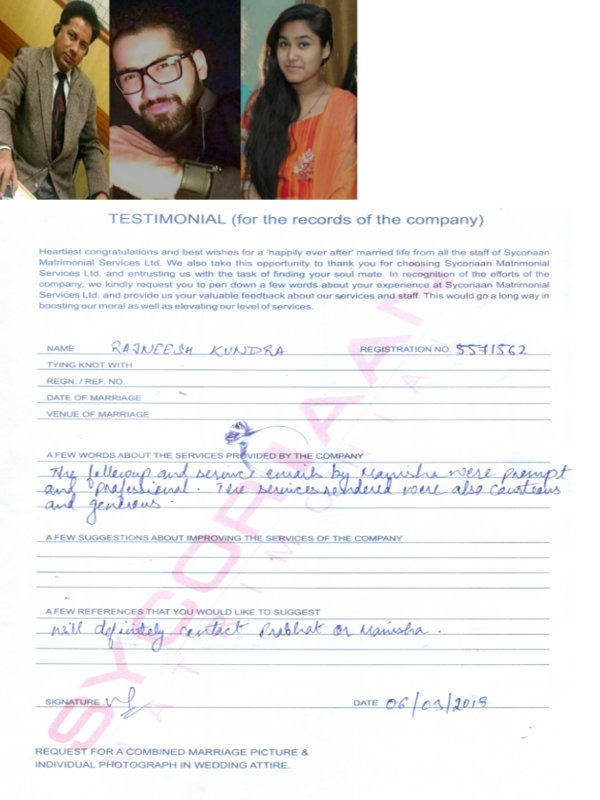 TESTIMONIAL (for the records of the company)
Heartiest congratulations and best wishes for a 'happily ever after' married life from all the staff of Sycoriaan
Matrimonial Services Ltd. We also take this opportunity to thank you for choosing Sycoriaan Matrimonial
Services Ltd. and entrusting us with the task of finding your soul mate. In recognition of the efforts of the
company, we kindly request you to pen down a few words about your experience at Sycoriaan Matrimonial
Services Ltd. and provide us your valuable feedback about our services and staff. This would go a long way in
boosting our moral as well as elevating our level of services.
NAME RAJNEESH KUNDRA REGISTRATION NO. 5571562
TYING KNOT WITH
REGN. / REF. NO.
DATE OF MARRIAGE
VENUE OF MARRIAGE
A FEW WORDS ABOUT THE SERVICES PROVIDED BY THE COMPANY
The followup and service emails by Manisha were prompt
and professional. The services rendered were also courteous
and generous.
A FEW SUGGESTIONS ABOUT IMPROVING THE SERVICES OF THE COMPANY
A FEW REFERENCES THAT YOU WOULD LIKE TO SUGGEST
will definitely contact Prabhat or Manisha.
SIGNATURE DATE 06/03/2019
REQUEST FOR A COMBINED MARRIAGE PICTURE &
INDIVIDUAL PHOTOGRAPH IN WEDDING ATTIRE.
SYCORIAAN
MATRIMONIAL